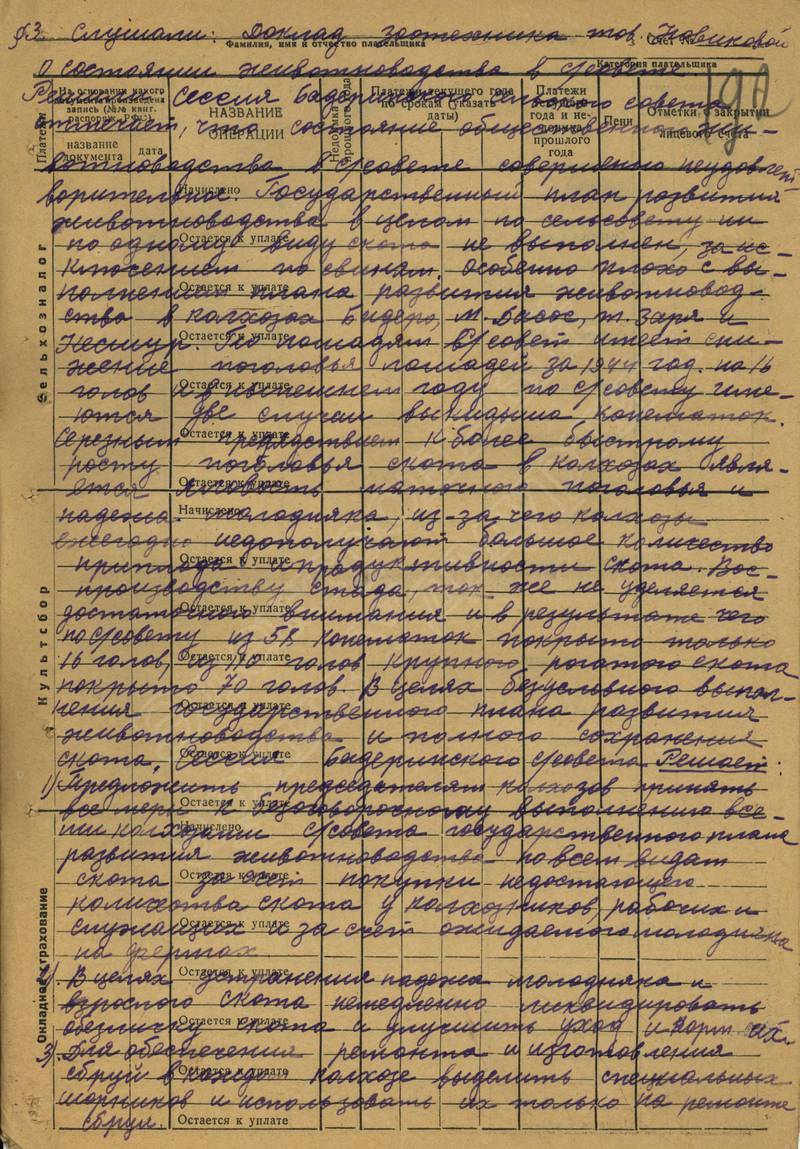 §3. Слушали: Доклад зоотехника тов. Новиковой
о состоянии животноводства в с/совете
Сессия сельского совета
отмечает, что состояние общественного жи-
вотноводства в с/совете совершенно неудовлет-
ворительное. Государственный план развития
животноводства в целом по сельсовету ни
по одному виду скота не выполнен, за ис-
ключением по свиням. Особенно плохо с вы-
полнением плана развития животновод-
ства в колхозах Бидеро, М. Басос, т. Заря и
По лошадям с/совет имеет сни-
жение поголовья лошадей за 1944 год на 16
голов и в нынешнем году по с/совету име-
ются две случаи выкидыша конематок.
Серезным препядствием к более быстрому
росту поголовья скота в колхозах явля-
ется яловость маточного поголовья и
падежа молодняка, из-за чего колхозы
ежегодно недополучают большое количество
приплода и продуктивности скота. Вос-
производству стада, так-же не уделяется
достаточного внимания и в результате чего
по с/совету из 58 конематок покрыто только
16 голов, из голов крупного рогатого скота
покрыто 70 голов. В целях безусловного выпол-
нения государственного плана развития
животноводства и полного сохранения
скота, сессия Бадеринского с/совета Решает:
1) Предложить председателям колхозов принять
все меры к безоговорочному выполнению все-
ми колхозами с/совета государственного плана
развития животноводства по всем видам
скота за счет покупки недостающего
количества скота у колхозников, рабочих и
служащих и за счет ожидаемого молодняка
на фермах
2) В целях устранения падежа молодняка и
взрослого скота немедленно ликвидировать
обезличку скота и улучшить уход и корм. их.
3) Для обеспечения ремонта и изготовления
сбруи в каждом колхозе выделить специальных
шорников и использовать их только на ремонте
сбруи.
Фамилия, имя и отчество плательщика
Счет №
Категория плательщика
190
Платежи
На основании какого документа произведена запись (№№ книг, распоряж. РФО)
название документа
дата
НАЗВАНИЕ ОПЕРАЦИИ
Недоимка прошлого года
Платежи текущего года по срокам (указать даты)
Платежи года и не- прошлого года
Пени
Отметки о закрытии лицевого счета
Сельхозналог
Начислено
Остается к уплате
Остается к уплате
Остается к уплате
Остается к уплате
Остается к уплате
Остается к уплате
Культсбор
Начислено
Остается к уплате
Остается к уплате
Остается к уплате
Остается к уплате
Остается к уплате
Остается к уплате
Окладное страхование
Начислено
Остается к уплате
Остается к уплате
Остается к уплате
Остается к уплате
Остается к уплате
Остается к уплате